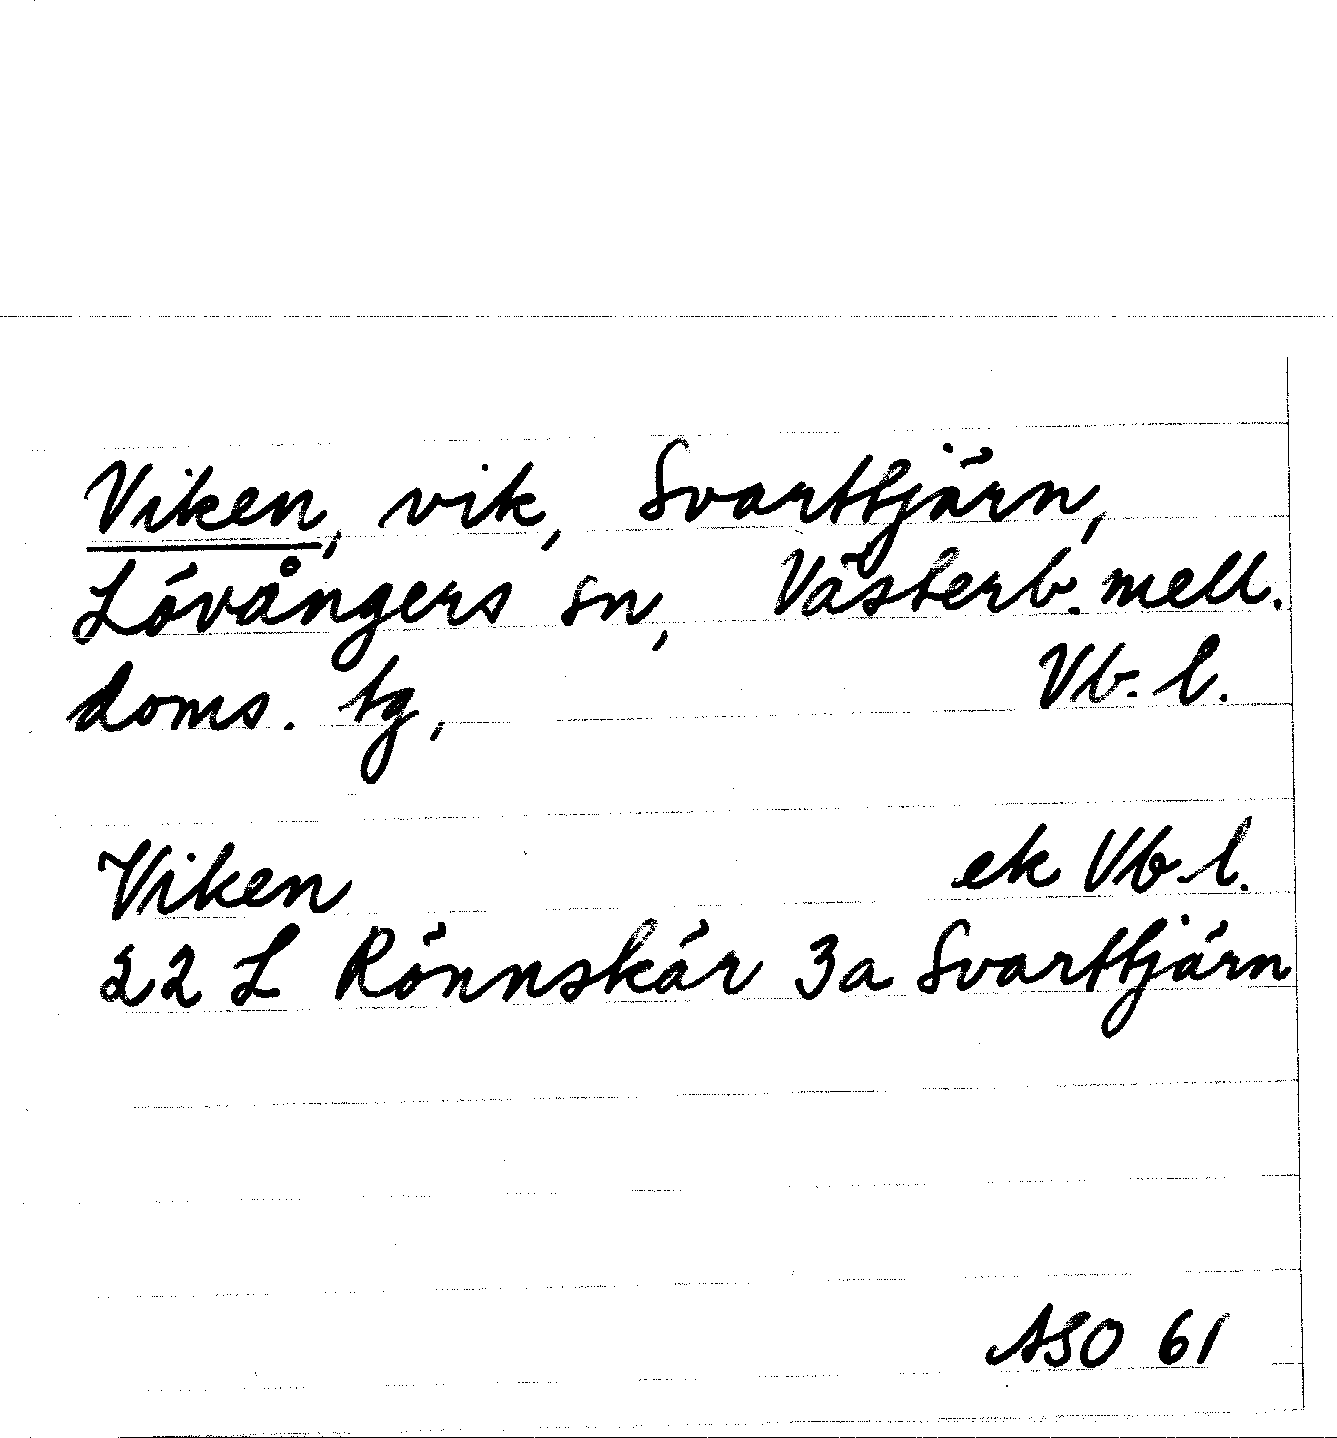 Viken, vik, Svarttjärn,
Lövångers sn, Västerb. mell.
doms. tg, Vb. l.
Viken ek Vb l.
22 L Rönnskär 3a Svarttjärn
ASO 61